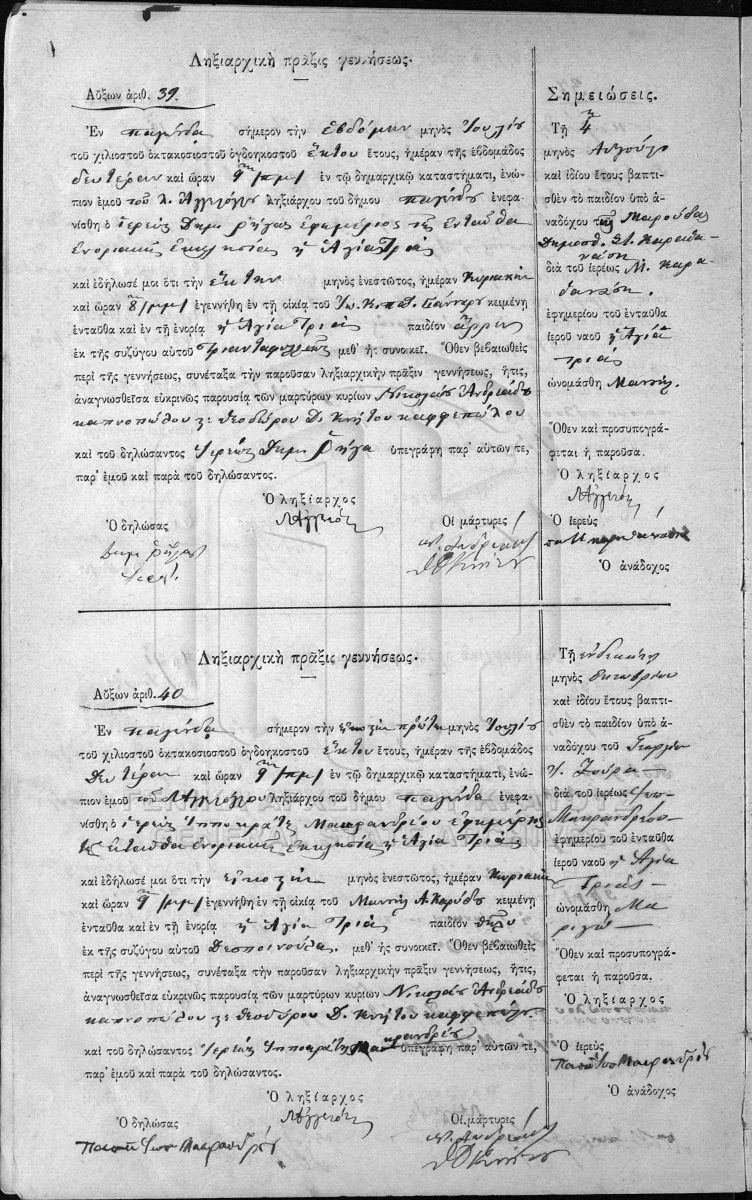 Ληξιαρχικὴ πρᾶξις γεννήσεως.
Αὔξων ἀριθ. 39.
Ἐν Παγώνδα σήμερον τὴν ἑβδόμην μηνὸς Ἰουλίου
τοῦ χιλιοστοῦ ὀκτακοσιοστοῦ ὀγδοηκοστοῦ ἕκτου ἔτους, ἡμέραν τῆς ἑβδομάδος
δευτέραν καὶ ὥραν 9 π/μ/ ἐν τῷ δημαρχικῷ καταστήματι, ἐνώ-
πιον ἐμοῦ τοῦ ληξιάρχου τοῦ δήμου ἐνεφα-
νίσθη ὁ ἱερεὺς Δημ Ῥήγας ἐφημέριος τῆς ἐνταῦθα
ἐνοριακῆς ἐκκλησίας ἡ Ἁγία Τριάς
καὶ ἐδήλωσέ μοι ὅτι τὴν ἕκτην μηνὸς ἐνεστῶτος, ἡμέραν Κυριακὴν
καὶ ὥραν 8 /μμ/ ἐγεννήθη ἐν τῇ οἰκίᾳ τοῦ κειμένῃ
ἐνταῦθα καὶ ἐν τῇ ἐνορίᾳ ἡ Ἁγία Τριάς παιδίον ἄρρεν
ἐκ τῆς συζύγου αὐτοῦ μεθ' ἧς συνοικεῖ. Ὅθεν βεβαιωθεὶς
περὶ τῆς γεννήσεως, συνέταξα τὴν παροῦσαν ληξιαρχικὴν πρᾶξιν γεννήσεως, ἥτις,
ἀναγνωσθεῖσα εὐκρινῶς παρουσίᾳ τῶν μαρτύρων κυρίων Νικολάου Ἀνδρεάδου
καπνοπώλου κ Θεοδώρου Δ. Κνήτου καφφεπώλου
καὶ τοῦ δηλώσαντος Ἱερέως Δημ Ῥήγα ὑπεγράφη παρ' αὐτῶν τε,
παρ' ἐμοῦ καὶ παρὰ τοῦ δηλώσαντος.
Ὁ ληξίαρχος
Ὁ δηλώσας
Οἱ μάρτυρες
Σημειώσεις.
Τῇ 4
μηνὸς Αὐγούστου
καὶ ἰδίου ἔτους βαπτι-
σθὲν τὸ παιδίον ὑπὸ ἀ-
ναδόχου Μαρούδας
Δημοσθ. Στ. Καραθα-
νάση
διὰ τοῦ ἱερέως Μ. Καρα-
θανάση.
ἐφημερίου τοῦ ἐνταῦθα
ἱεροῦ ναοῦ ἡ Ἁγία
Τριάς
ὠνομάσθη
Ὅθεν καὶ προσυπογρά-
φεται ἡ παροῦσα.
Ὁ ληξίαρχος
Ὁ ἱερεὺς
Ὁ ἀνάδοχος
Ληξιαρχικὴ πρᾶξις γεννήσεως.
Αὔξων ἀριθ. 40
Ἐν Παγώνδα σήμερον τὴν εἰκοστὴν πρώτην μηνὸς Ἰουλίου
τοῦ χιλιοστοῦ ὀκτακοσιοστοῦ ὀγδοηκοστοῦ ἕκτου ἔτους, ἡμέραν τῆς ἑβδομάδος
Δευτέραν καὶ ὥραν 9 /πμ/ ἐν τῷ δημαρχικῷ καταστήματι, ἐνώ-
πιον ἐμοῦ τοῦ ληξιάρχου τοῦ δήμου Παγώνδα ἐνεφα-
νίσθη ὁ ἱερεὺς Ἱπποκράτης Μακρανδρέου ἐφημέριος
τῆς ἐνταῦθα ἐνοριακῆς ἐκκλησίας ἡ Ἁγία Τριάς
καὶ ἐδήλωσέ μοι ὅτι τὴν εἰκοστὴν μηνὸς ἐνεστῶτος, ἡμέραν Κυριακὴν
καὶ ὥραν 9 /μμ/ ἐγεννήθη ἐν τῇ οἰκίᾳ τοῦ κειμένῃ
ἐνταῦθα καὶ ἐν τῇ ἐνορίᾳ ἡ Ἁγία Τριάς παιδίον θῆλυ
ἐκ τῆς συζύγου αὐτοῦ Δεσποινούλας. μεθ' ἧς συνοικεῖ. Ὅθεν βεβαιωθεὶς
περὶ τῆς γεννήσεως, συνέταξα τὴν παροῦσαν ληξιαρχικὴν πρᾶξιν γεννήσεως, ἥτις,
ἀναγνωσθεῖσα εὐκρινῶς παρουσίᾳ τῶν μαρτύρων κυρίων Νικολάου Ἀνδρεάδου
καπνοπώλου κ Θεοδώρου Δ. Κνήτου καφφεπώλου
καὶ τοῦ δηλώσαντος Ἱερέως Ἱπποκράτη Μακρανδρέου ὑπεγράφη παρ' αὐτῶν τε,
παρ' ἐμοῦ καὶ παρὰ τοῦ δηλώσαντος.
Ὁ ληξίαρχος
Ὁ δηλώσας
Οἱ μάρτυρες
Τῇ ἑνδεκάτῃ
μηνὸς Ὀκτωβρίου
καὶ ἰδίου ἔτους βαπτι-
σθὲν τὸ παιδίον ὑπὸ ἀ-
ναδόχου τοῦ Γεωργίου
Ζούρα
διὰ τοῦ ἱερέως Ἱππ.
Μακρανδρέου
ἐφημερίου τοῦ ἐνταῦθα
ἱεροῦ ναοῦ ἡ Ἁγία
Τριάς
ὠνομάσθη Μα
ριγώ
Ὅθεν καὶ προσυπογρά-
φεται ἡ παροῦσα.
Ὁ ληξίαρχος
Ὁ ἱερεὺς
Ὁ ἀνάδοχος